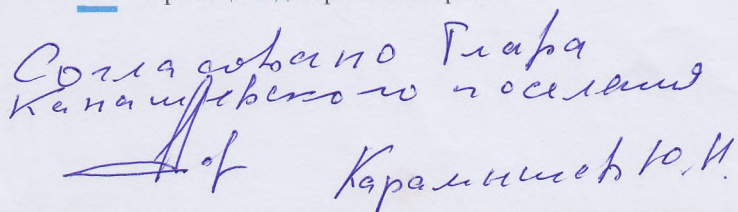 Согласовано Глава
Канашевского поселения
Карамышев Ю.Н.